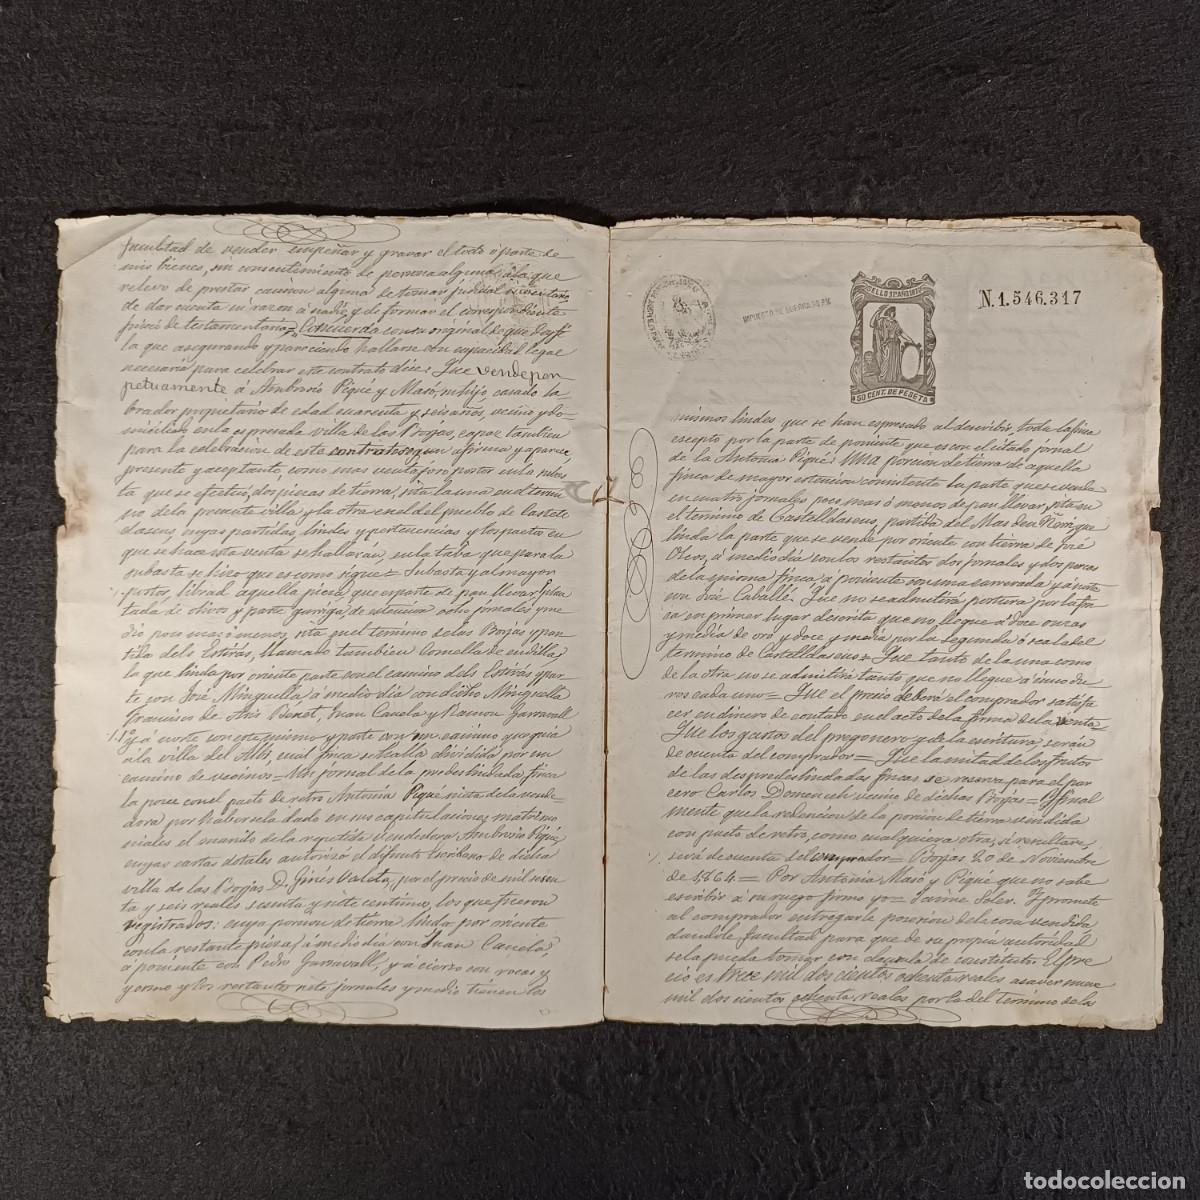 facultad de vender empeñar y gravar el todo ó parte de
mis bienes, sin consentimiento de persona alguna, á la que
relevo de prestar caucion alguna de tomar judicial inventario
de dar cuenta ni razon á nadie, y de formar el correspondiente
juicio de testamentaria. Concuerda con su original de que doy fé
la que asegurando y pareciendo hallarse con capacidad legal
necesaria para celebrar este contrato dice: Que vende per
petuamente á Ambrosio Piqué y Masó, su hijo casado la
brador propietario de edad cuarenta y seis años, vecino y do
miciliado en la espresada villa de las Borjas, capaz tambien
para la celebracion de este contrato segun afirma y aparece,
presente y aceptante, como mas ventajoso postor en la subas
ta que se efectuó, dos piezas de tierra, sita la una en el termi
no de la presente villa y la otra en el del pueblo de Castell
daseus cuyas partidas, lindes y pertenencias y los pactos en
que se hace esta venta se hallarán, en la taba que para la
subasta se hizo que es como sigue = Subasta y al mayor
postor, librad aquella pieza que es parte de pan llevar, plan
tada de olivos y parte garriga, de estension ocho jornales y me
dio poco mas ó menos, sita en el termino de las Borjas y par
tida dels Estivás, llamado tambien Comella de
la que linda por oriente parte con el camino dels Estivás y par
te con José Minguella, á medio dia con dicho Minguella
Francisco de Asis Benet, Juan Canela y Ramon Jarravall
y á norte con este mismo y parte con un camino que guia
á la villa del Albi, cual finca se halla dividida por un
camino de vecinos = Un jornal de la predeslindada finca
la posee con el pacto de retro Antonia Piqué nieta de la vende-
dora por habersela dado en sus capitulaciones matrimo
niales el marido de la repetida vendedora Ambrosio Piqué,
cuyas cartas dotales autorizó el difunto Escribano de dicha
villa de las Borjas D. Ginés Valeta, por el precio de mil
ta y seis reales sesenta y siete centimos, los que fueron
registrados: cuya porcion de tierra linda por oriente
con la restante pieza, á medio dia con Juan Canela,
á poniente con Pedro Jarravall, y á cierzo con rocas y
yermo y los restantes siete jornales y medio tienen los
SELLO 12º AÑO 1876
50 CENT. DE PESETA
N.1.546.317
IMPUESTO DE GUERRA 50 P%
mismos lindes que se han espresado al describir toda la finca
escepto por la parte de poniente que es con el citado jornal
de la Antonia Piqué: Una porcion de tierra de aquella
finca de mayor estension consistente la parte que se vende
en cuatro jornales poco mas ó menos de pan llevar, sita en
el termino de Castelldaseus, partida del Mas den Ñorigue
linda la parte que se vende por oriente con tierra de José
Olcos, á medio dia con los restantes dos jornales y dos porcas
de la misma finca á poniente con una carrerada y á norte
con José Caballé. Que no se admitirá postura por la fin
ca en primer lugar descrita que no llegue á doce onzas
y media de oro y doce y media por la segunda ó sea la del
termino de Castelldaseus = Que tanto de la una como
de la otra no se admitirá tanto que no llegue á cinco du-
ros cada uno = Que el precio deberá el comprador satisfa
cer en dinero de contado en el acto de la firma de la venta
Que los gastos del pregonero y de la escritura serán
de cuenta del comprador = Que la mitad de los frutos
de las dos predeslindadas fincas se reserva para el par
cero Carlos Domenech vecino de dichas Borjas = Y final
mente que la redencion de la porcion de tierra vendida
con pacto de retro, como cualquiera otra, si resultare,
será de cuenta del comprador = Borjas 20 de Noviembre
de 1864 = Por Antonia Masó y Piqué que no sabe
escribir á su ruego firmo yo = Jaime Soler. Y promete
al comprador entregarle posesion del cosa vendida
dandole facultad para que de su propia autoridad
se la pueda tomar con clausula de constituto. El pre
cio es trece mil doscientos ochenta reales á saber nueve
mil doscientos ochenta reales por la del termino de las
todocoleccion